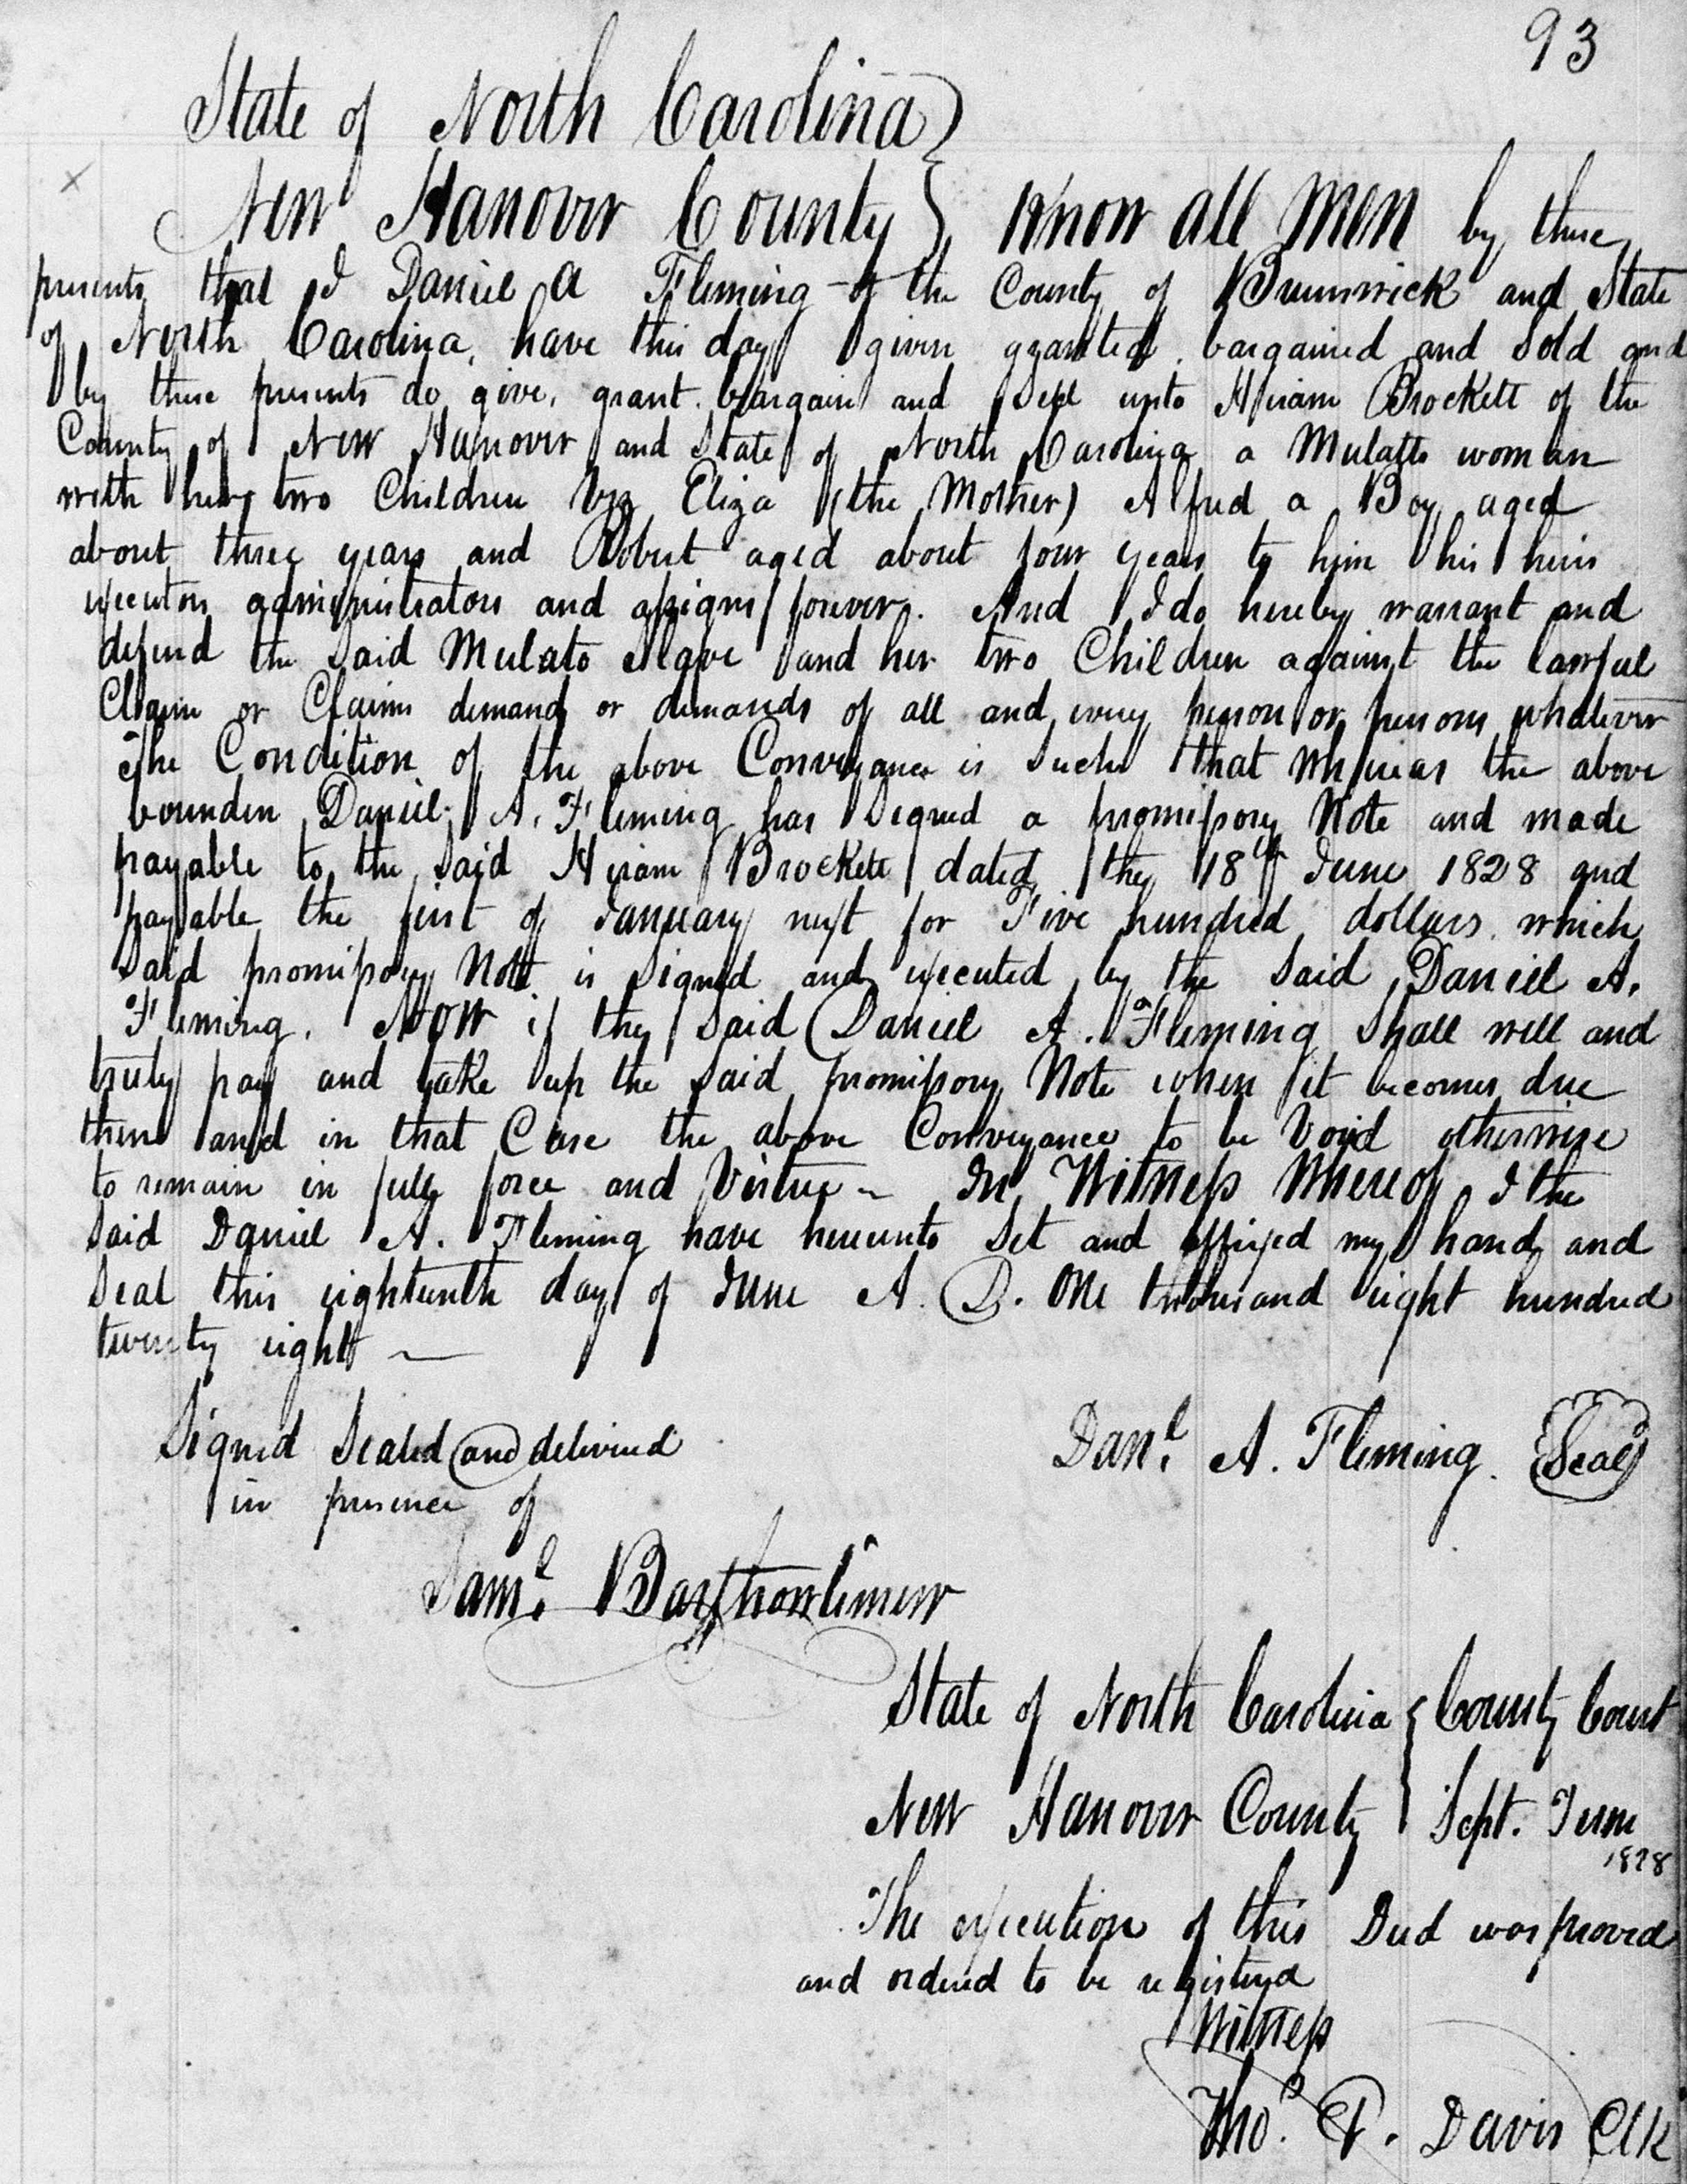 93
State of North Carolina }
New Hanover County } Know all Men by these
presents that I Daniel A Fleming of the County of Brunswick and State
of North Carolina, have this day given granted bargained and Sold and
by these presents do give, grant bargain and Sell unto Hiram Brockett of the
County of New Hanover and State of North Carolina a Mulatto woman
with her two Children Viz Eliza (the Mother) Alfred a Boy aged
about three years and Robert aged about four years to him his heirs
executors administrators and assigns forever. And I do hereby warrant and
defend the Said Mulato Slave and her two Children against the lawful
Claim or Claims demand or demands of all and every person or persons whatever
The Condition of the above Conveyance is Such that Whereas the above
bounden Daniel A. Fleming has Signed a promissory Note and made
payable to the Said Hiram Brockett dated the 18th June 1828 and
payable the first of January next for Five hundred dollars which
Said promissory Note is Signed and executed by the Said Daniel A.
Fleming. Now if the Said Daniel A. Fleming Shall well and
truly pay and take up the Said promissory Note when it becomes due
then and in that Case the above Conveyance to be Void otherwise
to remain in full force and Virtue ~ In Witness Whereof I the
Said Daniel A. Fleming have hereunto Set and affixed my hand and
Seal this eighteenth day of June A. D. One thousand eight hundred
twenty eight —
Signed Sealed and delivered
Danl. A. Fleming. Seal
in presence of
Saml. Barthowlimew
State of North Carolina } County Court
New Hanover County } Sept. Term
1828
The execution of this Deed was proved
and ordered to be registered
Witness
Thos. F. Davis Clk